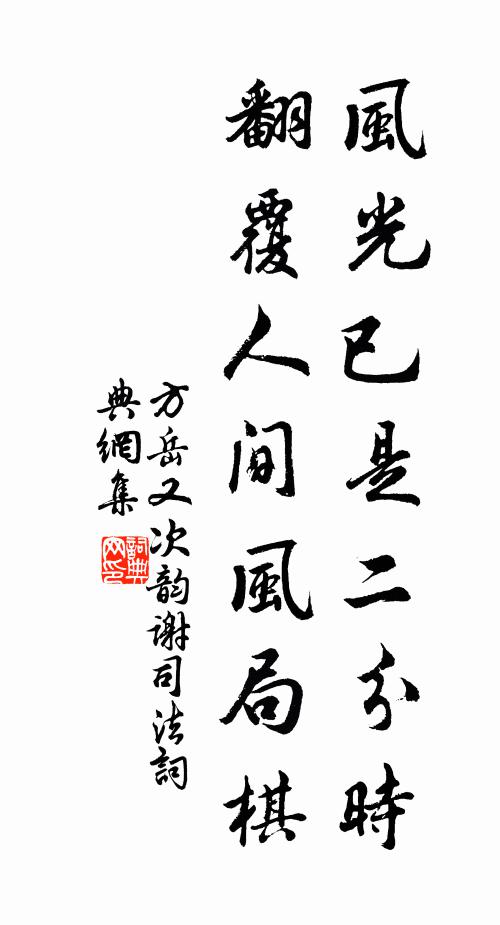 風光已是二分時
翻覆人間風局棋
方岳又次韵謝司法詞
典網集
詞典网印